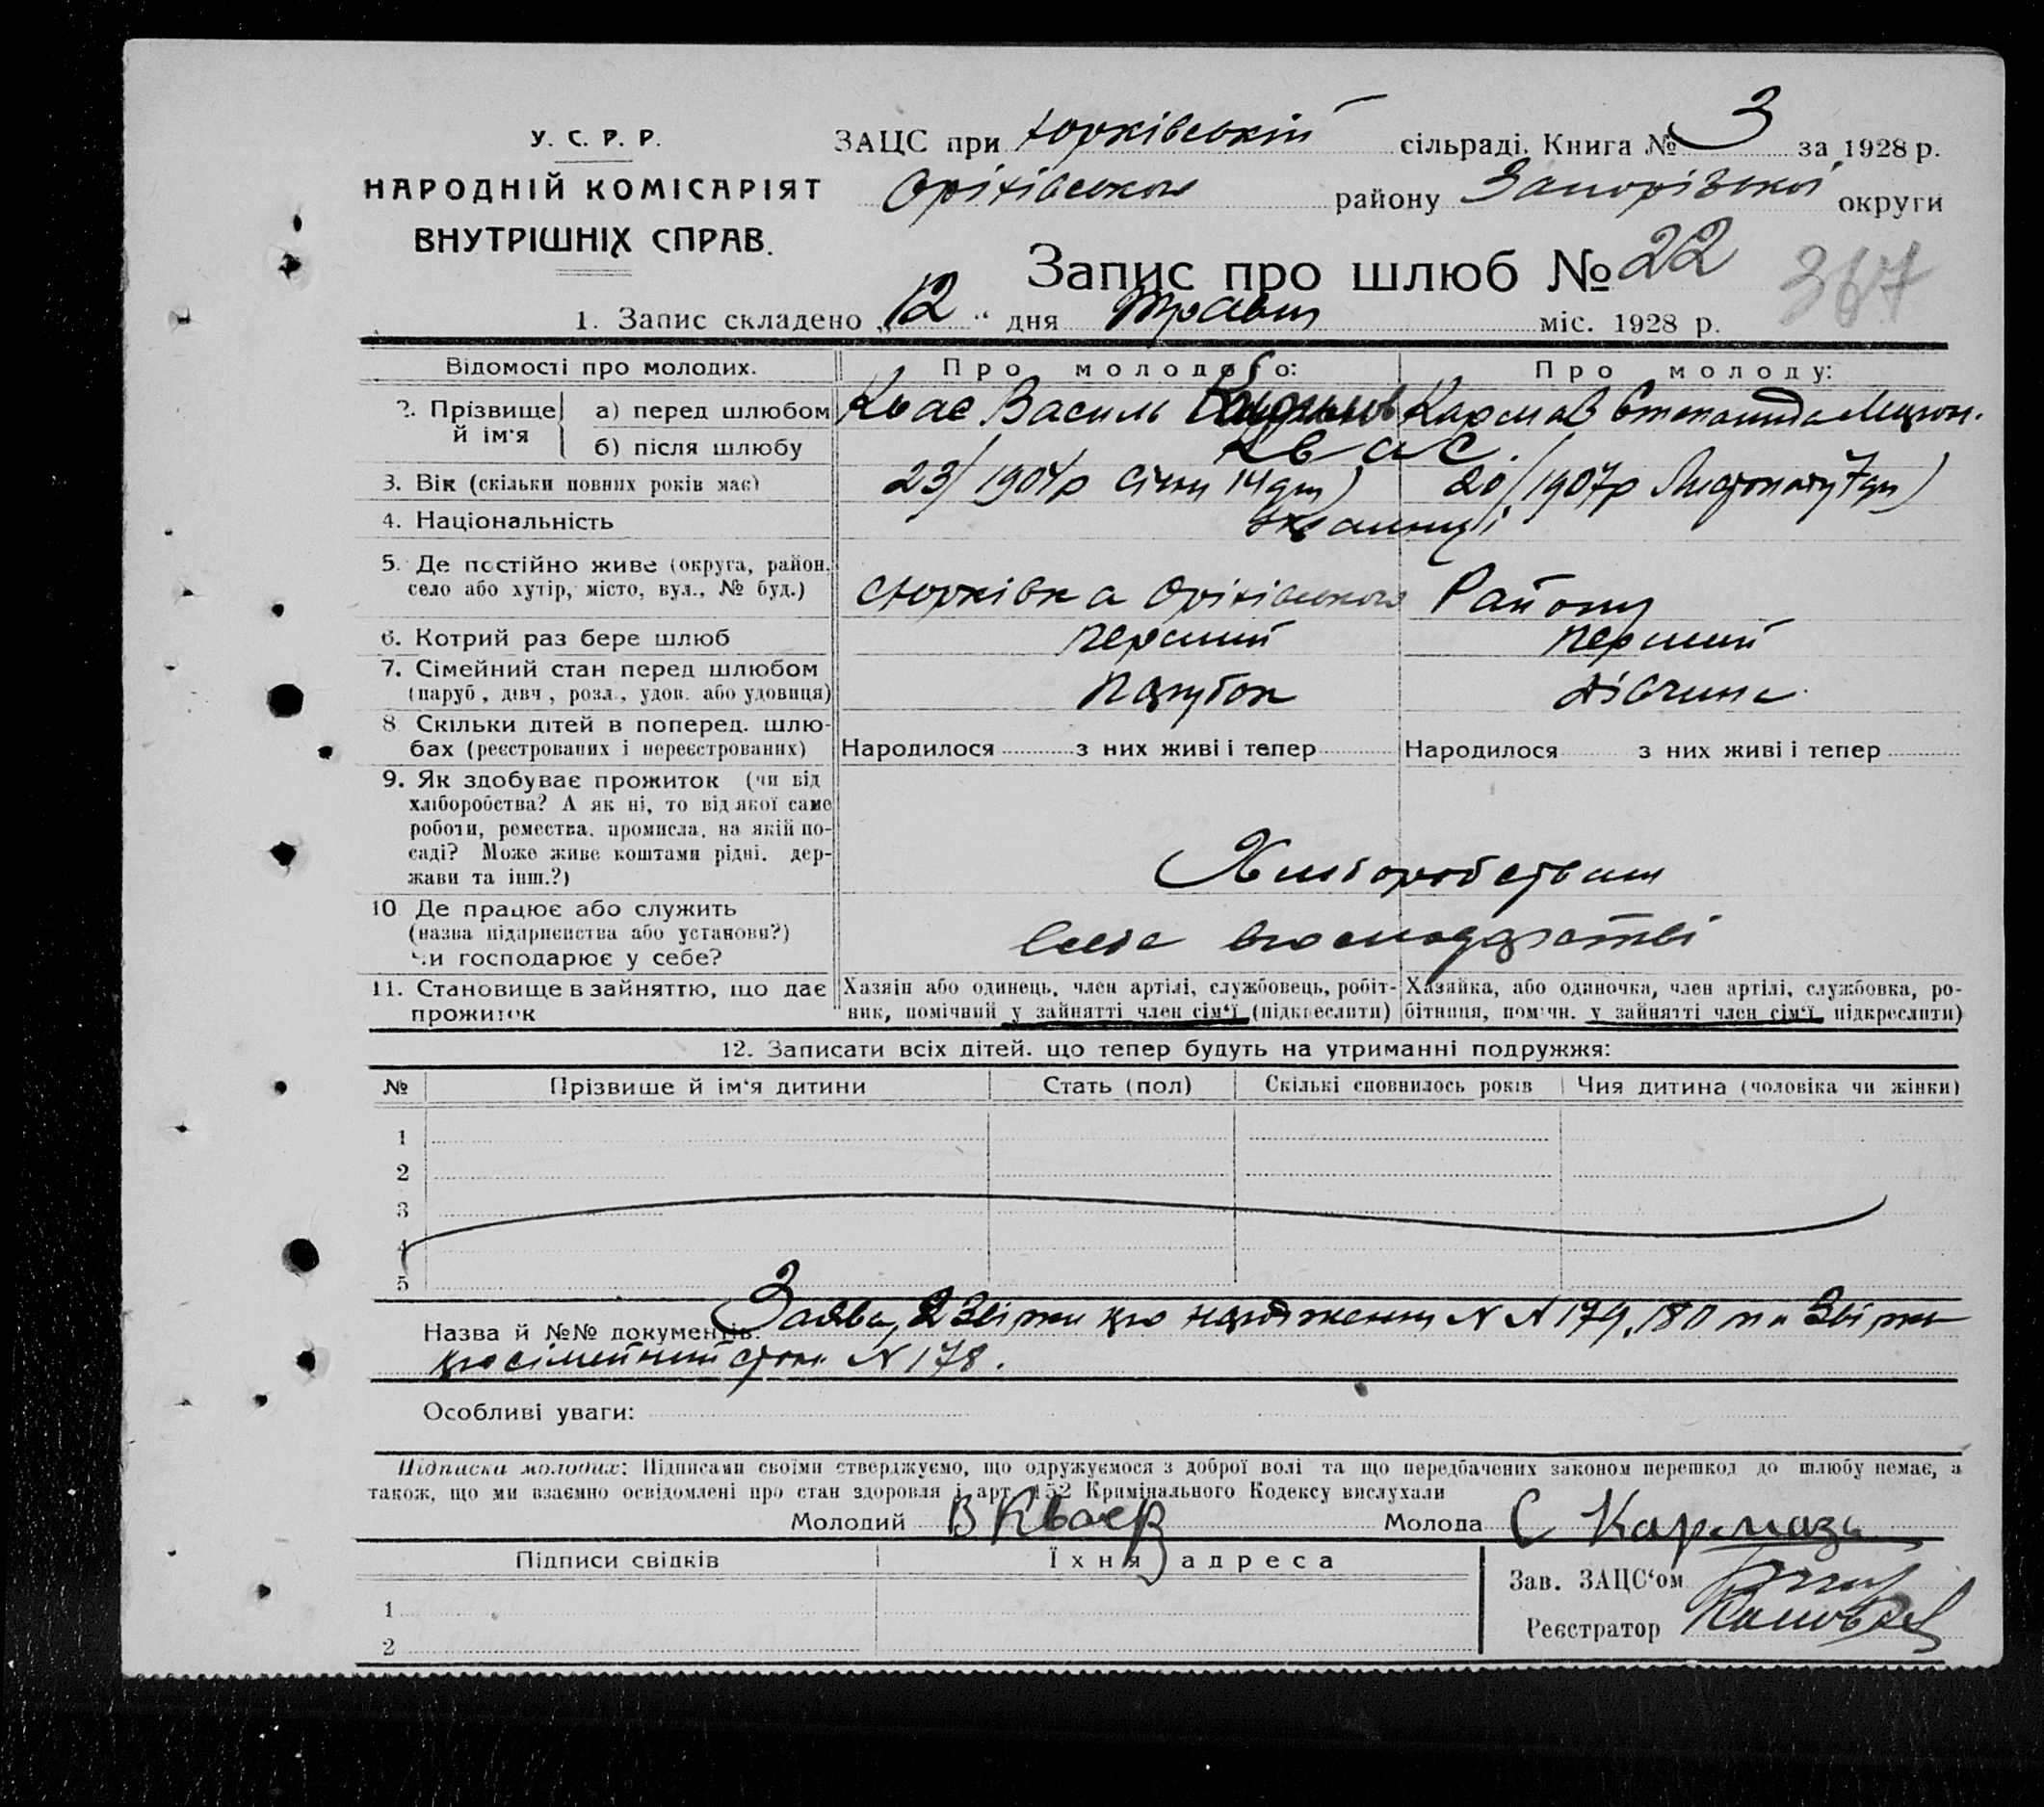 У. С. Р. Р.
НАРОДНІЙ КОМІСАРІЯТ
ВНУТРІШНІХ СПРАВ.
ЗАЦС при Юрківській сільраді. Книга № 3 за 1928 р.
Оріхівського району Запорізької округи
Запис про шлюб № 22
367
1. Запис складено „12“ дня Травня міс. 1928 р.
Відомості про молодих. Про молодого: Про молоду:
2. Прізвище й ім'я
а) перед шлюбом Квас Василь Кармазь Степанида
б) після шлюбу Квас.
3. Вік (скільки повних років має) 23/1904р Січня 14дня) 20/1907р Листопаду 7дня)
4. Національність Українці
5. Де постійно живе (округа, район, село або хутір, місто, вул., № буд.) с Юрківка Оріхівського Району
6. Котрий раз бере шлюб перший перший
7. Сімейний стан перед шлюбом (паруб., дівч., розл., удов. або удовиця) парубок дівчина
8. Скільки дітей в поперед. шлюбах (реєстрованих і нереєстрованих) Народилося з них живі і тепер Народилося з них живі і тепер
9. Як здобуває прожиток (чи від
хліборобства? А як ні, то від якої саме
роботи, ремества, промисла, на якій по-
саді? Може живе коштами рідні, дер-
жави та інш.?) Хліборобством
10. Де працює або служить
(назва підприємства або установи?)
чи господарює у себе? господарстві
11. Становище в зайняттю, що дає прожиток
Хазяїн або одинець, член артілі, службовець, робіт-
ник, помічний у зайнятті член сім'ї (підкреслити)
Хазяйка, або одиночка, член артілі, службовка, ро-
бітниця, помічн. у зайнятті член сім'ї підкреслити)
12. Записати всіх дітей, що тепер будуть на утриманні подружжя:
№ Прізвище й ім'я дитини Стать (пол) Скількі сповнилось років Чия дитина (чоловіка чи жінки)
1
2
3
4
5
Назва й №№ документів: Заява, 2 Звірки про народження N N 179, 180 та Звірка
про сімейний стан N 178.
Особливі уваги:
Підписка молодих: Підписами своїми стверджуємо, що одружуємося з доброї волі та що передбачених законом перешкод до шлюбу немає, а
також, що ми взаємно освідомлені про стан здоровля і арт. 152 Кримінального Кодексу вислухали
Молодий В Квас Молода С Кармазь
Підписи свідків Їхня адреса
Зав. ЗАЦС'ом
1
Реєстратор
2